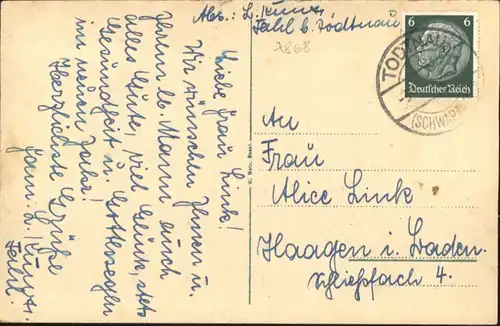 Abs.: L. Kunz
Fahl b. Todtnau
7868
6 6
Deutsches Reich
TODTNAU
(SCHWARZW
Liebe Frau Link!
Wir wünschen Ihnen u.
Ihrem lb. Mann auch
alles Gute, viel Glück, stets
Gesundheit u. Gottessegen
im neuen Jahr!
Herzlichste Grüße
Fam. L.
Fahl.
An
Frau
Alice Link
Haagen i. Baden.
Schließfach 4.